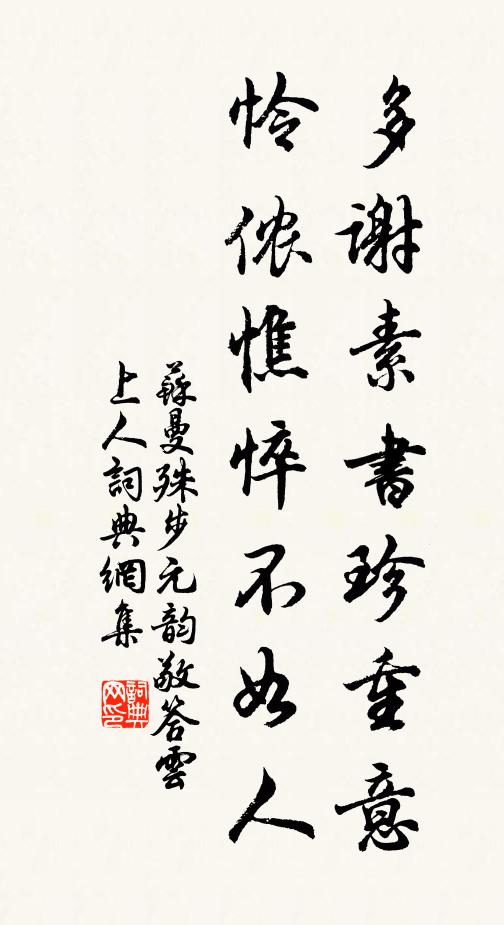 多謝素書珍重意
怜侬憔悴不如人
蘇曼殊步元韵敬答雲
上人詞典網集
詞典网印